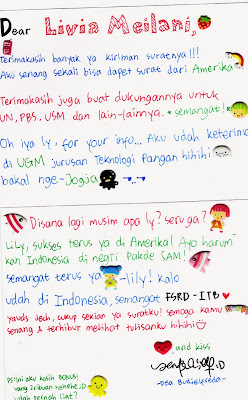 Dear Livia Meilani,
Terimakasih banyak ya kiriman suratnya!!!
Aku senang sekali bisa dapet surat dari Amerika
Terimakasih juga buat dukungannya untuk
UN, PBS, USM dan lain-lainnya. *semangat!*
Oh iya ly, for your info... Aku udah keterima
di UGM jurusan Teknologi Pangan hihihi
bakal nge-Jogja
Disana lagi musim apa ly? seru ga?
Lily, sukses terus ya di Amerika! Ayo harum
kan Indonesia di negri Pakde SAM!
semangat terus ya -lily! kalo
udah di Indonesia, semangat FSRD-ITB
yauds deh, cukup sekian ya suratku! semoga kamu
senang & terhibur melihat tulisanku hihihi
and kiss
PS: ini aku kasih BONUS!
uang
udah pernah liat?